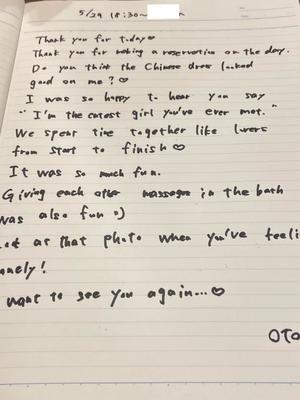 5/29 18:30~
Thank you for today♡
Thank you for making a reservation on the day.
Do you think the Chinese dress looked
good on me?♡
I was so happy to hear you say
"I'm the cutest girl you've ever met."
We spent time together like lvers
from start to finish♡
It was so much fun.
Giving each other massages in the bath
was also fun :)
at that photo when you've feeli
want to see you again...♡